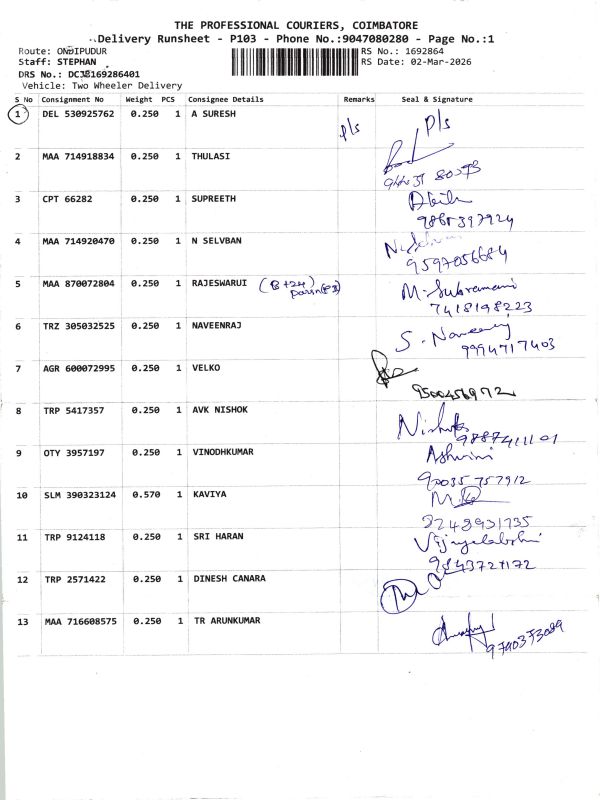 THE PROFESSIONAL COURIERS, COIMBATORE
Delivery Runsheet - P103 - Phone No.:9047080280 - Page No.:1
Route: ONDIPUDUR RS No.: 1692864
Staff: STEPHAN RS Date: 02-Mar-2026
DRS No.: DCJB169286401
Vehicle: Two Wheeler Delivery
S No Consignment No Weight PCS Consignee Details Remarks Seal & Signature
1 DEL 530925762 0.250 1 A SURESH p/s p/s
2 MAA 714918834 0.250 1 THULASI
3 CPT 66282 0.250 1 SUPREETH
9865397924
4 MAA 714920470 0.250 1 N SELVBAN
9597056684
5 MAA 870072804 0.250 1 RAJESWARUI M. Subramani
7418198223
6 TRZ 305032525 0.250 1 NAVEENRAJ S. Naveen
9994717403
7 AGR 600072995 0.250 1 VELKO
9500456972
8 TRP 5417357 0.250 1 AVK NISHOK
9 OTY 3957197 0.250 1 VINODHKUMAR Ashwini
90035 757912
10 SLM 390323124 0.570 1 KAVIYA
11 TRP 9124118 0.250 1 SRI HARAN Vijayalakshmi
9843721172
12 TRP 2571422 0.250 1 DINESH CANARA
13 MAA 716608575 0.250 1 TR ARUNKUMAR